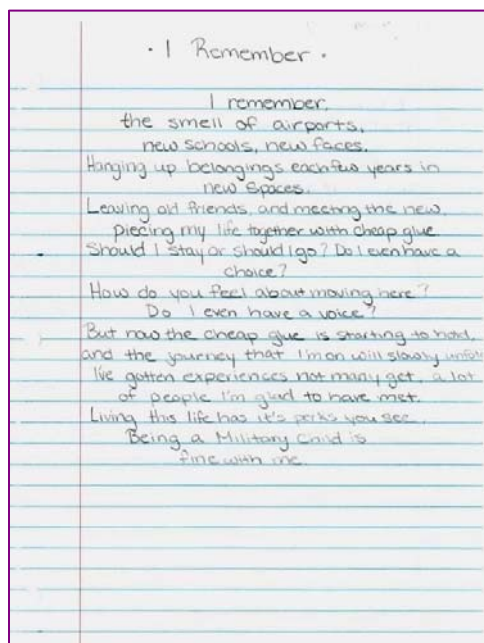 · I Remember ·
I remember,
the smell of airports,
new schools, new faces.
Hanging up belongings each few years in
new spaces.
Leaving old friends, and meeting the new,
piecing my life together with cheap glue
Should I stay or should I go? Do I even have a
choice?
How do you feel about moving here?
Do I even have a voice?
But now the cheap glue is starting to hold,
and the journey that I'm on will slowly unfold
I've gotten experiences not many get, a lot
of people I'm glad to have met.
Living this life has it's perks you see,
Being a Military Child is
fine with me